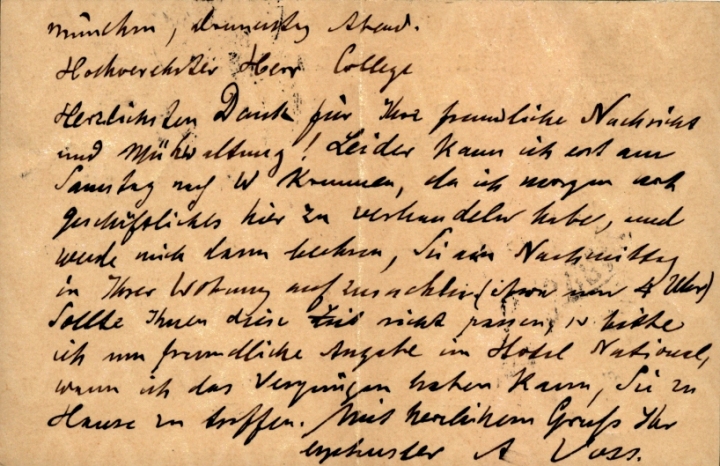 München, Donnerstag Abend.
Hochverehrter Herr College
Herzlichsten Dank für Ihre freundliche Nachricht
und Mühwaltung! Leider kann ich erst am
Samstag nach W kommen, da ich morgen noch
geschäftliches hier zu verhandeln habe, und
werde mich dann beehren, Sie am Nachmittag
in Ihrer Wohnung aufzusuchen (etwa um 4 Uhr)
Sollte Ihnen diese Zeit nicht passen, so bitte
ich um freundliche Angabe im Hotel National,
wann ich das Vergnügen haben kann, Sie zu
Hause zu treffen. Mit herzlichem Gruß Ihr
ergebenster A Voss.